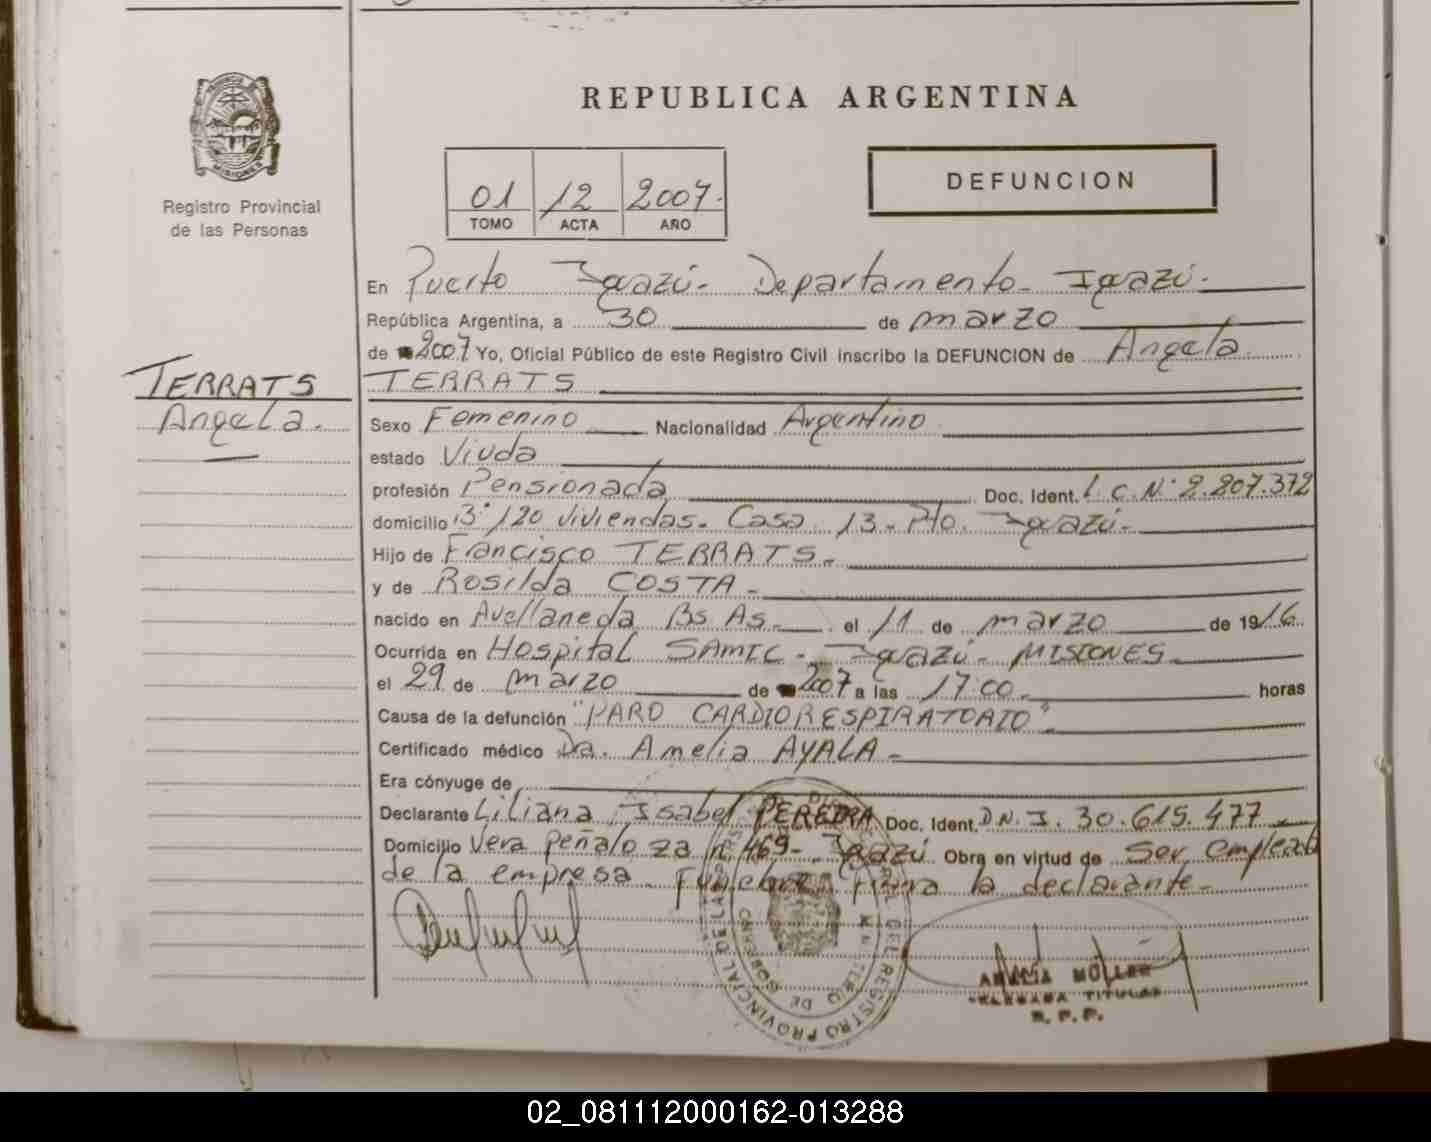 PROVINCIA DE
MISIONES
Registro Provincial
de las Personas
TERRATS
Angela.
REPUBLICA ARGENTINA
01 12 2007.
TOMO ACTA AÑO
DEFUNCION
En Puerto Iguazú- Departamento- Iguazú.
República Argentina, a 30 de marzo
de 2007 Yo, Oficial Público de este Registro Civil inscribo la DEFUNCION de Angela
TERRATS
Sexo Femenino Nacionalidad Argentino
estado Viuda
profesión Pensionada Doc. Ident. L.C.Nº 2.807.372
domicilio Bº 120 viviendas. Casa 13- Pto. Iguazú-
Hijo de Francisco TERRATS-
y de Rosilda COSTA-
nacido en Avellaneda Bs As- el 11 de marzo de 1916
Ocurrida en Hospital SAMIC- Iguazú- MISIONES-
el 29 de marzo de 2007 a las 17:00 horas
Causa de la defunción "PARO CARDIORESPIRATORIO"-
Certificado médico Dra. Amelia AYALA-
Era cónyuge de
Declarante Liliana Isabel PEREIRA Doc. Ident. D.N.I. 30.615.477
Domicilio Vera Peñaloza nº 469- Iguazú Obra en virtud de Ser emplead
de la empresa Funebre. Firma la declarante-
REGISTRO PROVINCIAL DE LAS PERS
MINISTERIO DE GOBIERNO
MÖLLER
DELEGADA TITULAR
R. P. P.
02_081112000162-013288